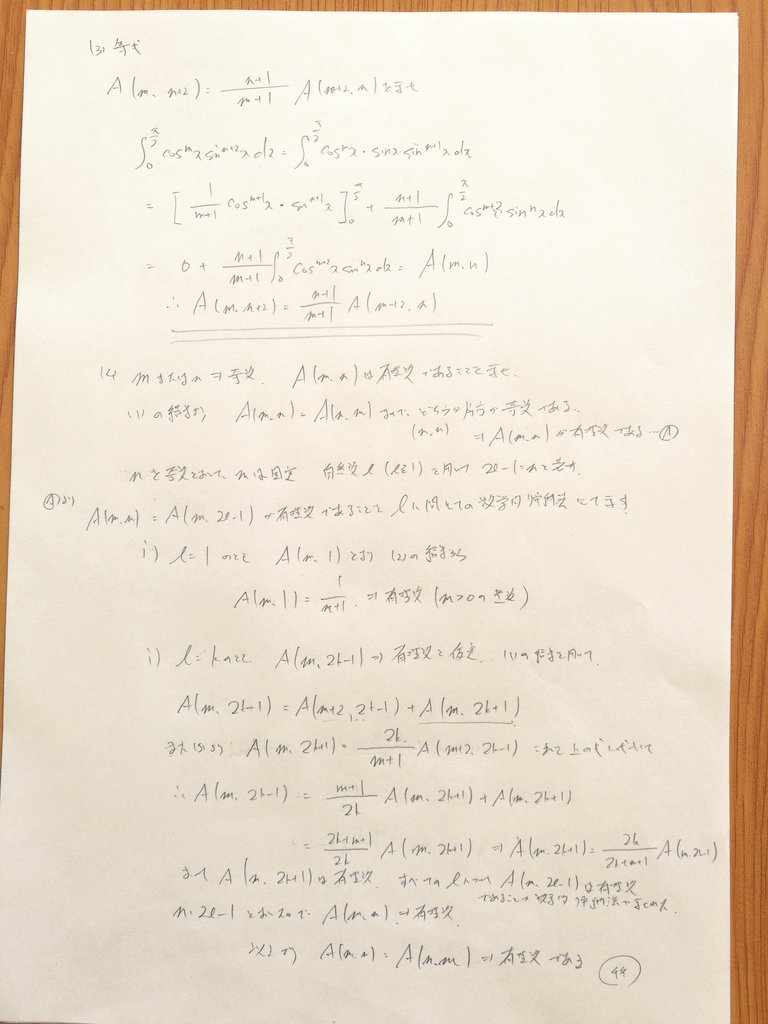 (3) 等式
A(m, n+2) = \frac{n+1}{m+1} A(m+2, n) を示せ
∫_0^{\frac{π}{2}} cos^m x sin^{n+2} x dx = ∫_0^{\frac{π}{2}} cos^m x・sin x sin^{n+1} x dx
= [ \frac{1}{m+1} cos^{m+1} x・sin^{n+1} x ]_0^{\frac{π}{2}} + \frac{n+1}{m+1} ∫_0^{\frac{π}{2}} cos^{m+2} x・sin^n x dx
= 0 + \frac{n+1}{m+1} ∫_0^{\frac{π}{2}} cos^{m+2} x sin^n x dx = A(m, n)
∴ A(m, n+2) = \frac{n+1}{m+1} A(m+2, n)
(4 m または n ⇒ 奇数. A(m, n) は有理数であることを示せ.
(1) の結果から A(m, n) = A(n, m) なので どちらか片方が奇数である.
(m, n) ⇒ A(m, n) が有理数である … Ⓐ
n を奇数として m は固定 自然数 l (l≧1) を用いて 2l-1 = n と表す.
Ⓐより A(m, n) = A(m, 2l-1) が有理数であることを l に関しての数学的帰納法にて示す
i) l = 1 のとき A(m, 1) となり (2) の結果から
A(m, 1) = \frac{1}{m+1} ⇒ 有理数 (m>0 の整数)
i) l = k のとき A(m, 2k-1) ⇒ 有理数と仮定. (1) の結果を用いて.
A(m, 2k-1) = A(m+2, 2k-1) + A(m, 2k+1)
また (3) から A(m, 2k+1) = \frac{2k}{m+1} A(m+2, 2k-1) これを上の式に代入して
∴ A(m, 2k-1) = \frac{m+1}{2k} A(m, 2k+1) + A(m, 2k+1)
= \frac{2k+m+1}{2k} A(m, 2k+1) ⇒ A(m, 2k+1) = \frac{2k}{2k+m+1} A(m, 2k-1)
よって A(m, 2k+1) は有理数. すべての l について A(m, 2l-1) は有理数
であることが数学的帰納法で示された.
n = 2l-1 とおいたので A(m, n) ⇒ 有理数.
以上より A(m, n) = A(n, m) ⇒ 有理数である